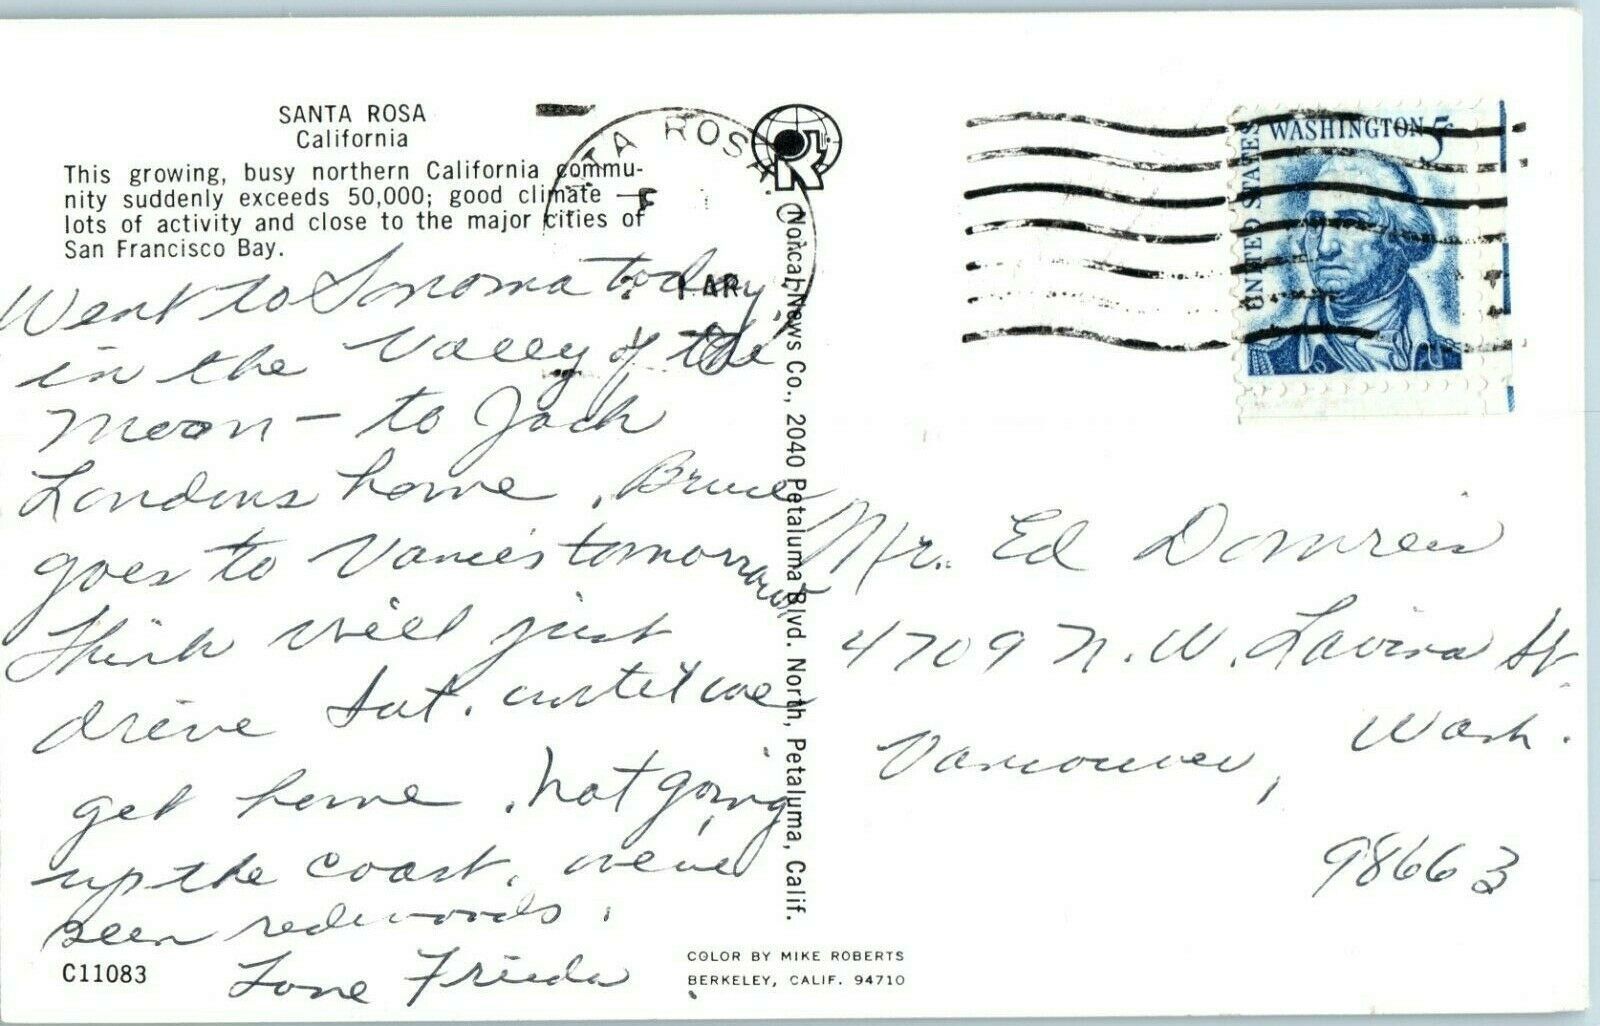 SANTA ROSA
California
This growing, busy northern California commu-
nity suddenly exceeds 50,000; good climate —
lots of activity and close to the major cities of
San Francisco Bay.
Went to Sonoma today,
in the Valley of the
Moon — to Jack
Londons home. Bruce
goes to Vances tomorrow
Think will just
drive Sat. until we
get home. Not going
up the coast. weve
seen redwoods.
Love Frieda
C11083
TA ROSA, C
Norcal News Co., 2040 Petaluma Blvd. North, Petaluma, Calif.
COLOR BY MIKE ROBERTS
BERKELEY, CALIF. 94710
UNITED STATES
WASHINGTON 5c
Mr. Ed Domreis
4709 N.W. Lavina St.
Vancouver, Wash.
98663